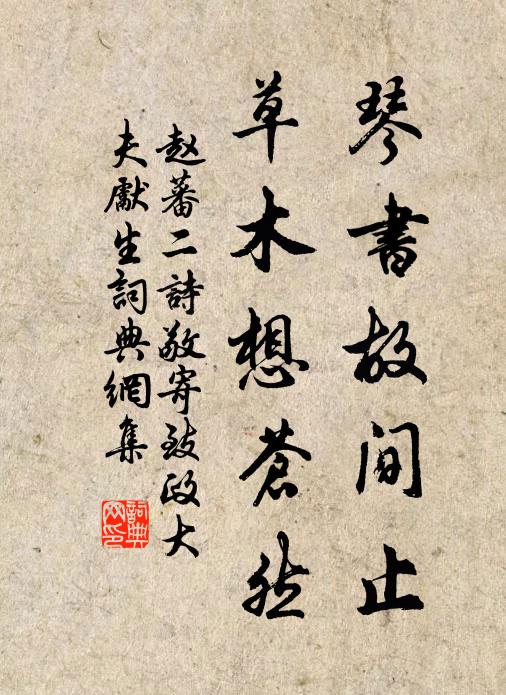 琴書故間止
草木想蒼然
赵蕃二詩敬寄致政大
夫獻生詞典網集
詞典
网印